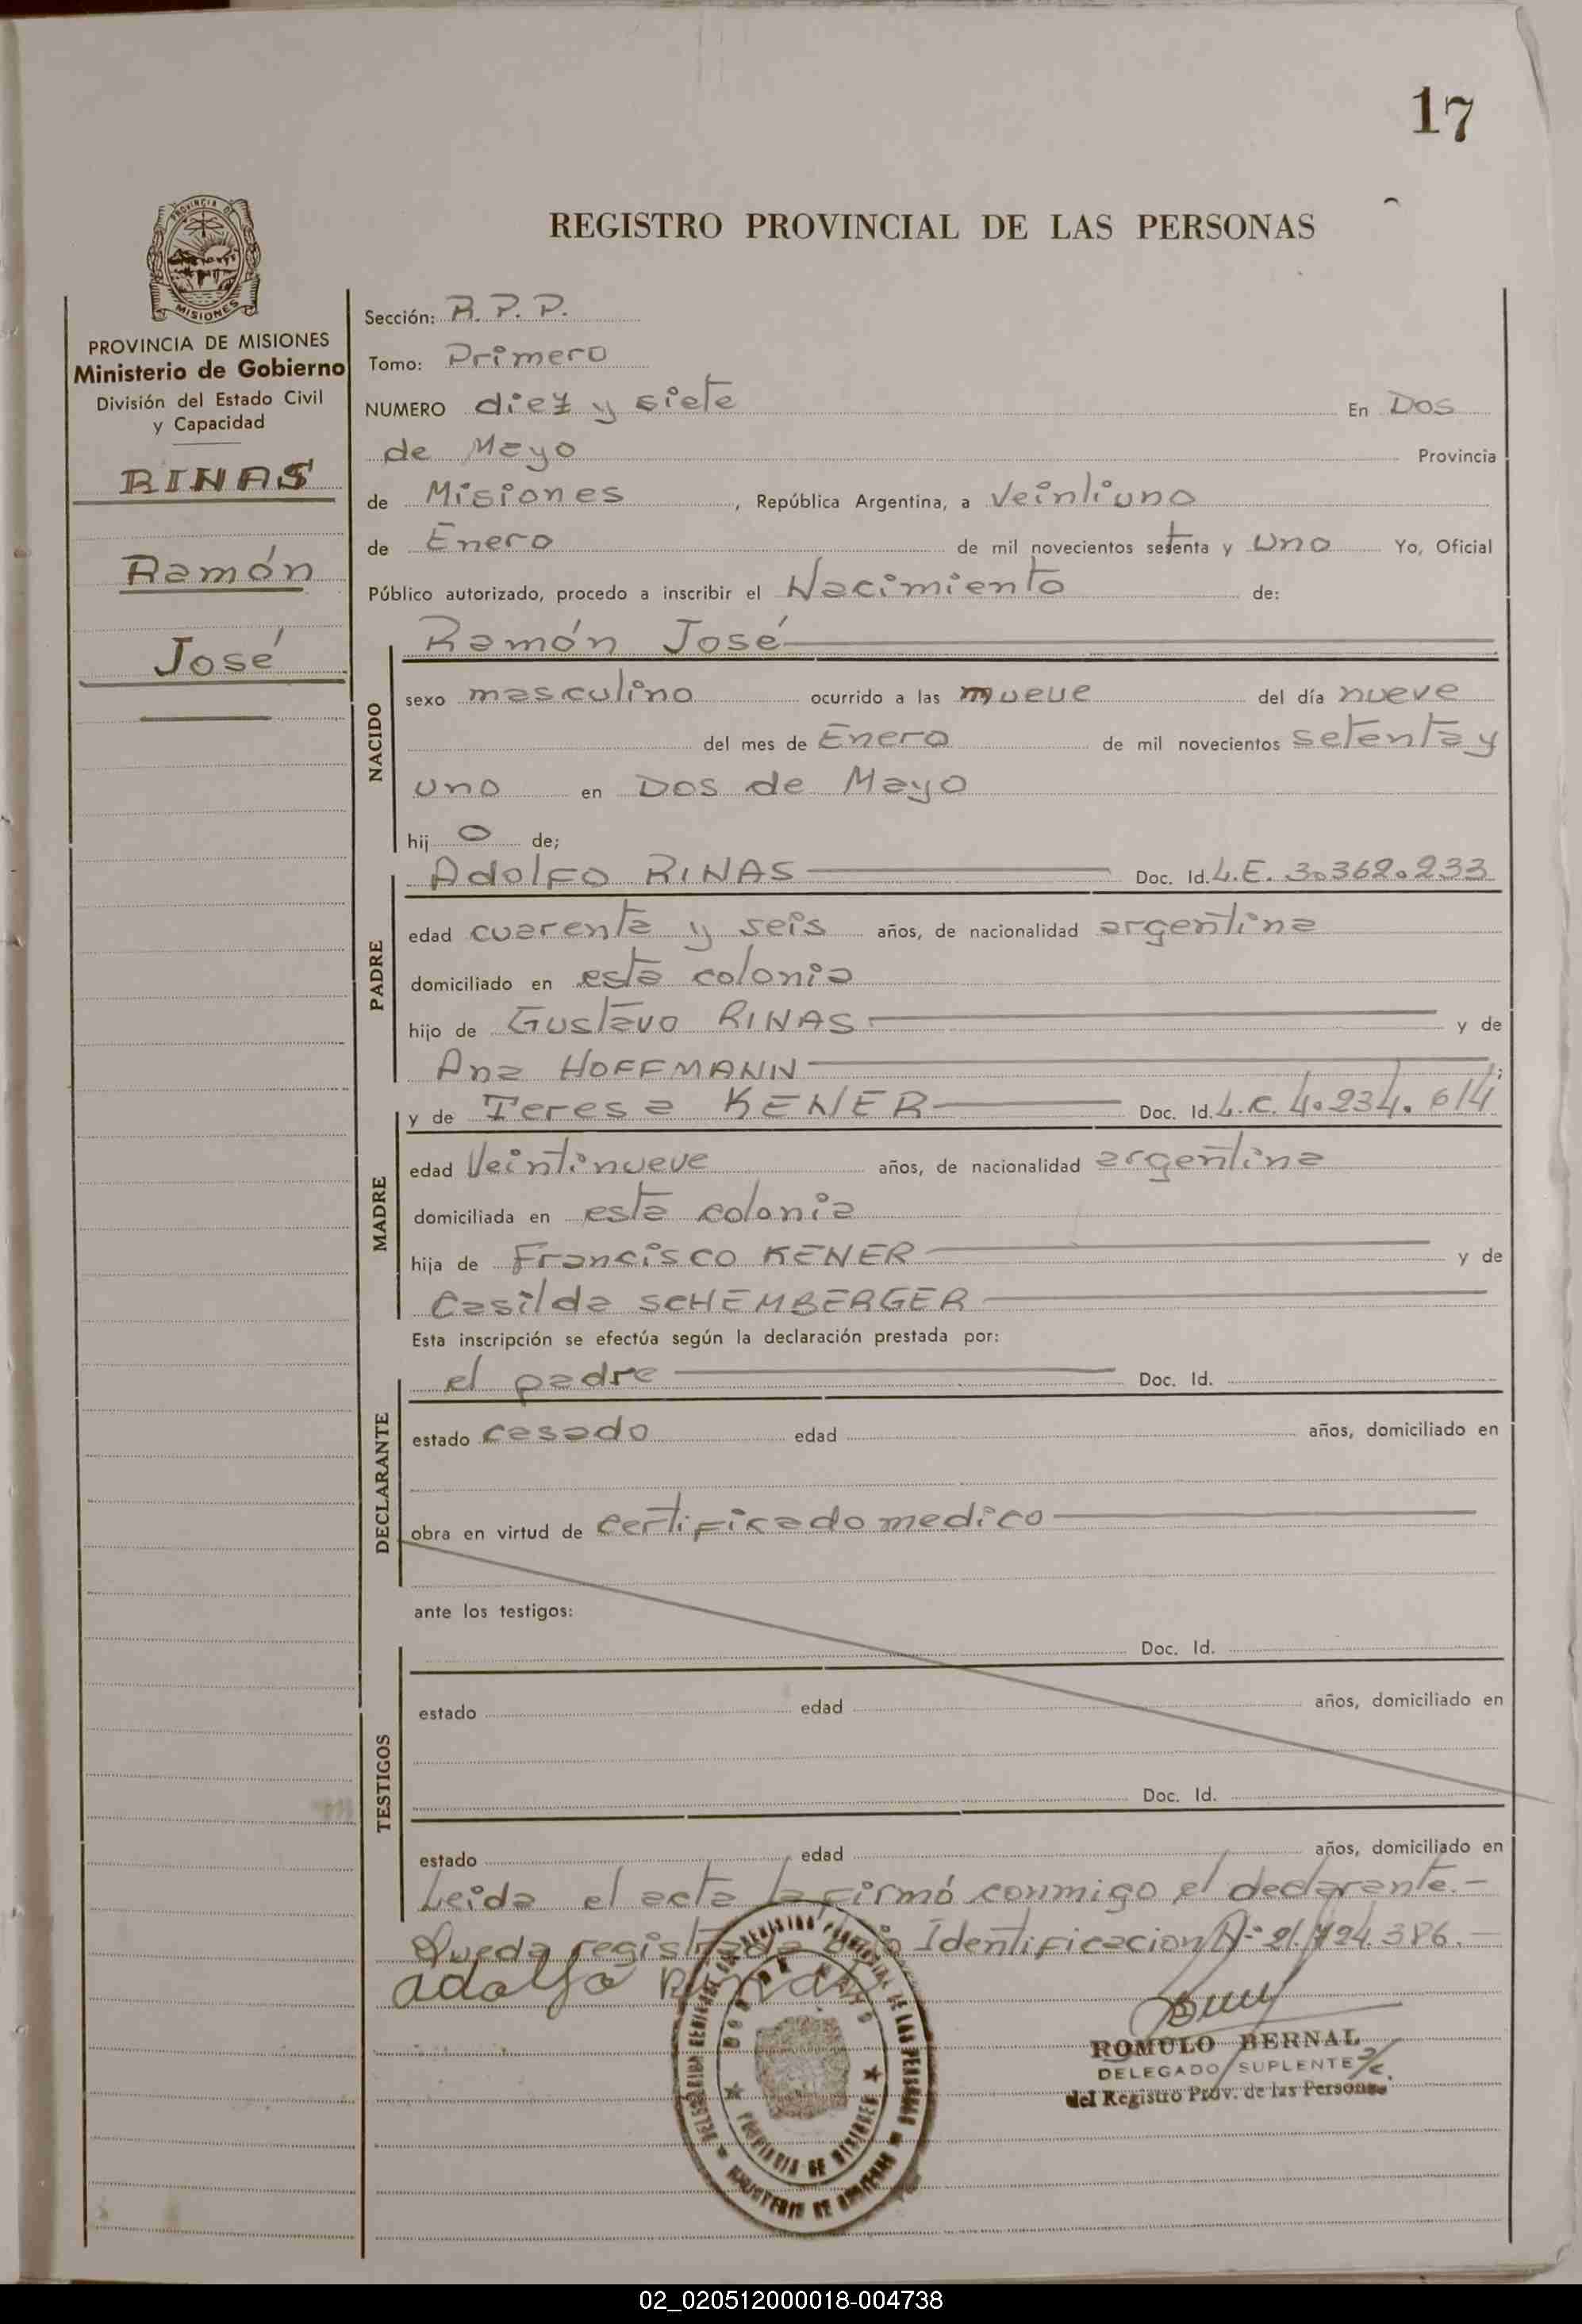 17
REGISTRO PROVINCIAL DE LAS PERSONAS
PROVINCIA DE
MISIONES
PROVINCIA DE MISIONES
Ministerio de Gobierno
División del Estado Civil
y Capacidad
RINAS
Ramón
José
Sección: R.P.P.
Tomo: Primero
NUMERO diez y siete En Dos
de Mayo Provincia
de Misiones, República Argentina, a Veintiuno
de Enero de mil novecientos setenta y uno Yo, Oficial
Público autorizado, procedo a inscribir el Nacimiento de:
Ramón José
NACIDO
sexo masculino ocurrido a las nueve del día nueve
del mes de Enero de mil novecientos setenta y
uno en Dos de Mayo
hij o de;
PADRE
Adolfo RINAS Doc. Id. L.E. 3.362.233
edad cuarenta y seis años, de nacionalidad argentina
domiciliado en esta colonia
hijo de Gustavo RINAS y de
Ana HOFFMANN ;
MADRE
y de Teresa KENER Doc. Id. L.C. 4.234.614
edad Veintinueve años, de nacionalidad argentina
domiciliada en esta colonia
hija de Francisco KENER y de
Casilda SCHEMBERGER
Esta inscripción se efectúa según la declaración prestada por:
DECLARANTE
el padre Doc. Id.
estado casado edad años, domiciliado en
obra en virtud de certificado medico
ante los testigos:
TESTIGOS
Doc. Id.
estado edad años, domiciliado en
Doc. Id.
estado edad años, domiciliado en
Leida el acta la firmó conmigo el declarante.-
Queda registrada bajo Identificacion Nº 21.724.386.-
adolfo Rinas
ROMULO BERNAL
DELEGADO SUPLENTE
del Registro Prov. de las Personas
DOS DE MAYO
PROVINCIA DE MISIONES
02_020512000018-004738